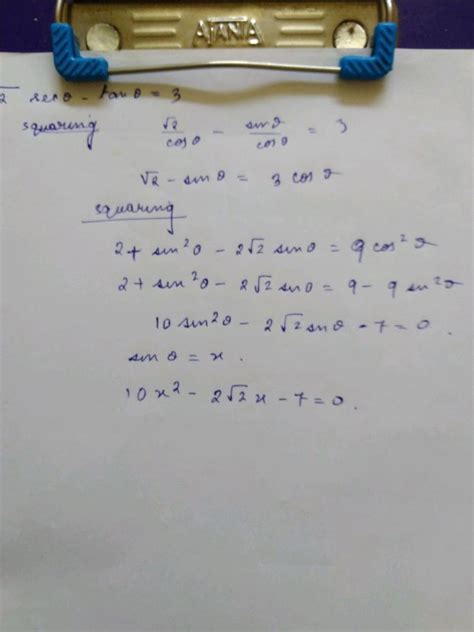 AJANTA
√2 secθ - tanθ = 3
squaring √2/cosθ - sinθ/cosθ = 3
√2 - sinθ = 3 cosθ
squaring
2 + sin²θ - 2√2 sinθ = 9 cos²θ
2 + sin²θ - 2√2 sinθ = 9 - 9 sin²θ
10 sin²θ - 2√2 sinθ - 7 = 0
sinθ = x.
10x² - 2√2x - 7 = 0.